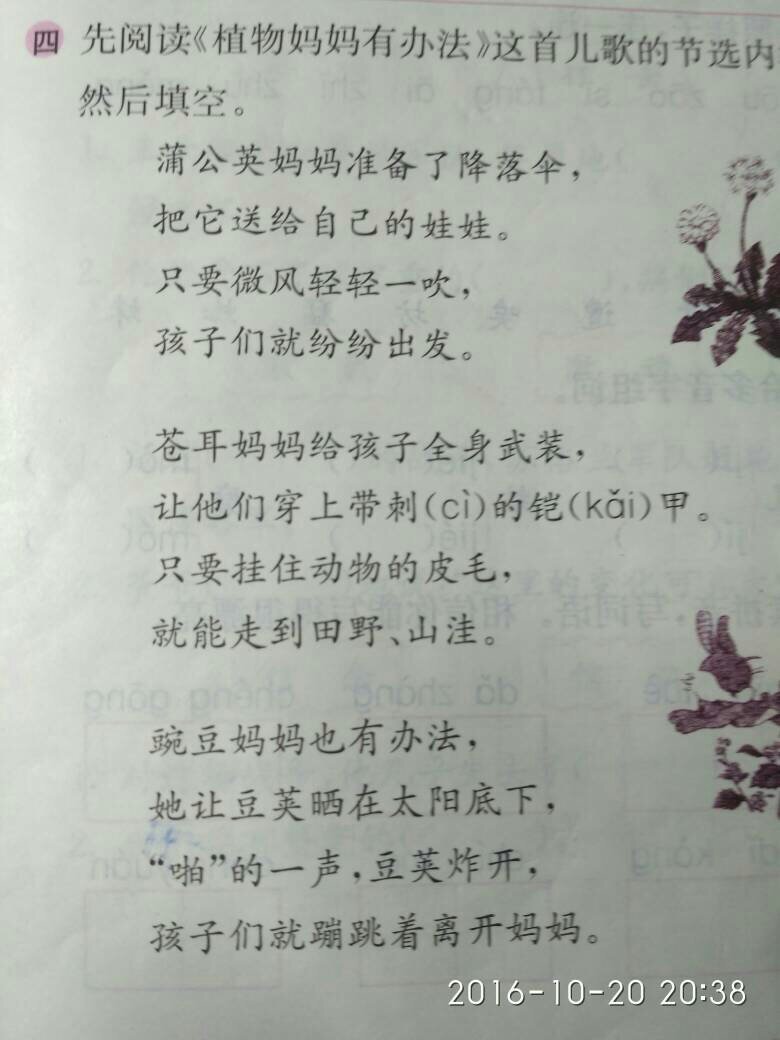 四 先阅读《植物妈妈有办法》这首儿歌的节选内
然后填空。
蒲公英妈妈准备了降落伞，
把它送给自己的娃娃。
只要微风轻轻一吹，
孩子们就纷纷出发。
苍耳妈妈给孩子全身武装，
让他们穿上带刺(cì)的铠(kǎi)甲。
只要挂住动物的皮毛，
就能走到田野、山洼。
豌豆妈妈也有办法，
她让豆荚晒在太阳底下，
“啪”的一声，豆荚炸开，
孩子们就蹦跳着离开妈妈。
2016-10-20 20:38